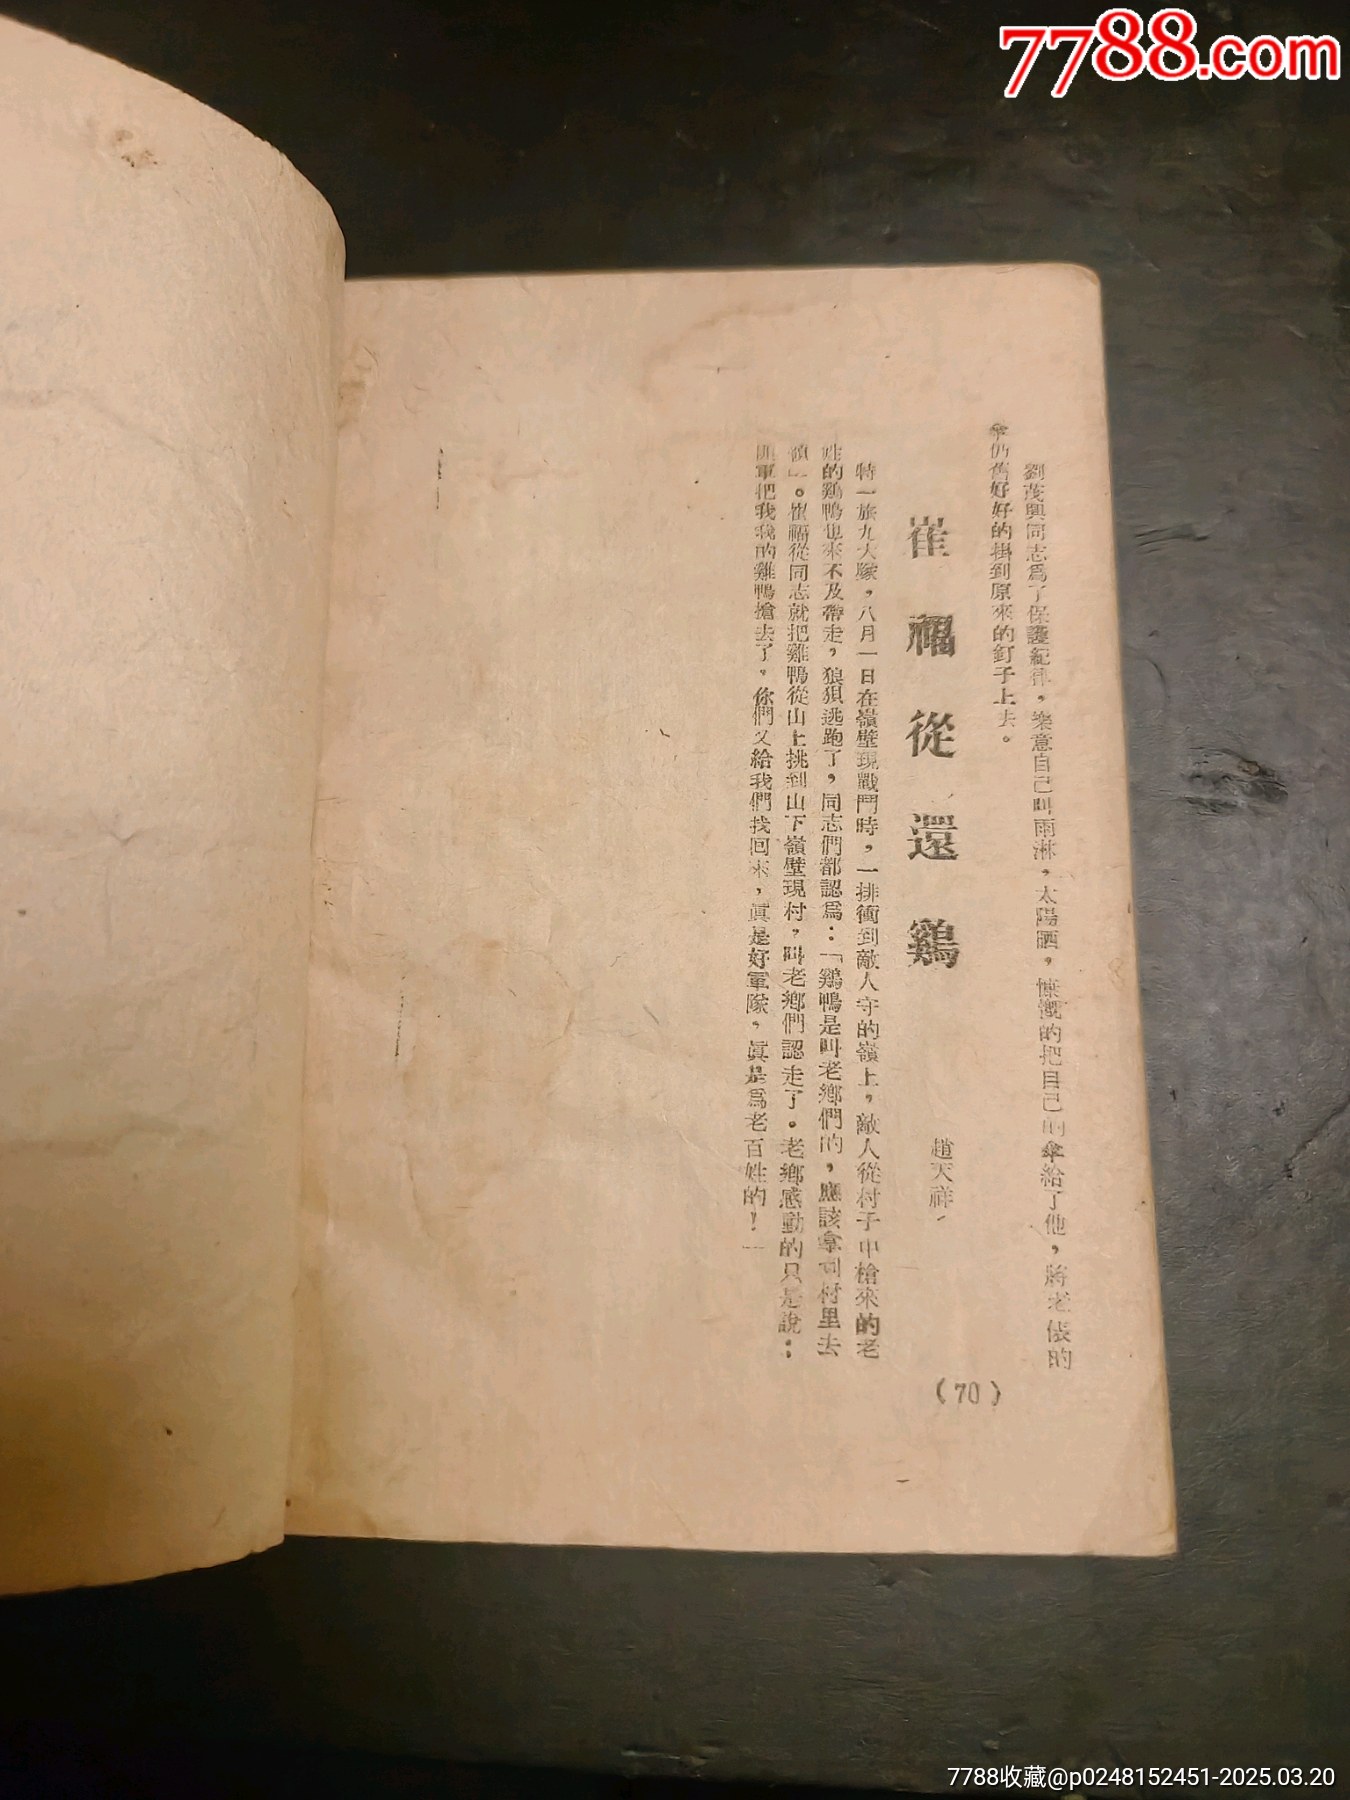 7788.com
劉茂興同志為了保護紀律，樂意自己叫雨淋，太陽晒，慷慨的把自己的傘給了他，將老俵的
傘仍舊好好的掛到原來的釘子上去。
崔福從還鷄
趙天祥
特一旅九大隊，八月一日在嶺壁現戰鬥時，一排衝到敵人守的嶺上，敵人從村子中槍來的老
姓的鷄鴨也來不及帶走，狼狽逃跑了，同志們都認為：「鷄鴨是叫老鄉們的，應該拿到村里去
領」。崔福從同志就把雞鴨從山上挑到山下嶺壁現村，叫老鄉們認走了。老鄉感動的只是說：
匪軍把我我的雞鴨搶去了，你們又給我們找回來，眞是好軍隊，眞是為老百姓的！
（70）
7788收藏@p0248152451-2025.03.20